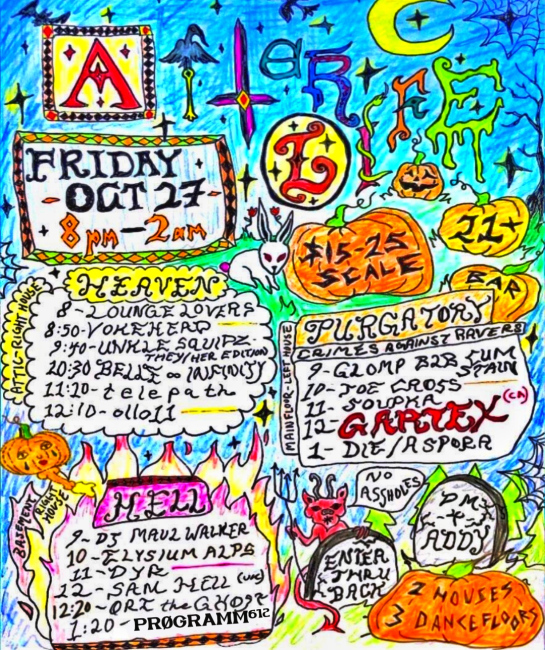 AFTER LIFE
FRIDAY
OCT 27
8pm-2am
$15-25
SCALE
21+
BAR
ATTIC-RIGHT HOUSE
HEAVEN
8-LOUNGE LOVERS
8:50-VOKEHERD
9:40-UNKLE SQUIPZ
THEY/HER EDITION
10:30 BELLE ∞ INFINITY
11:20-telepath
12:10-ollo11
MAINFLOOR-LEFT HOUSE
PURGATORY
CRIMES AGAINST RAVERS
9-GLOMP B2B CUM
STAIN
10-JOE CROSS
11-SOUPHA
12-GARTEX (CA)
1-DIE/ASPORA
BASEMENT
RIGHT
HOUSE
HELL
9-DJ MAUL WALKER
10-ELYSIUM ALPS
11-DYR
12-SAM HELL
12:20-ORT the GHOST
1:20-PRØGRAMM612
NO
ASSHOLES
DM
4
ADDY
ENTER
THRU
BACK
2 HOUSES
3 DANCEFLOORS